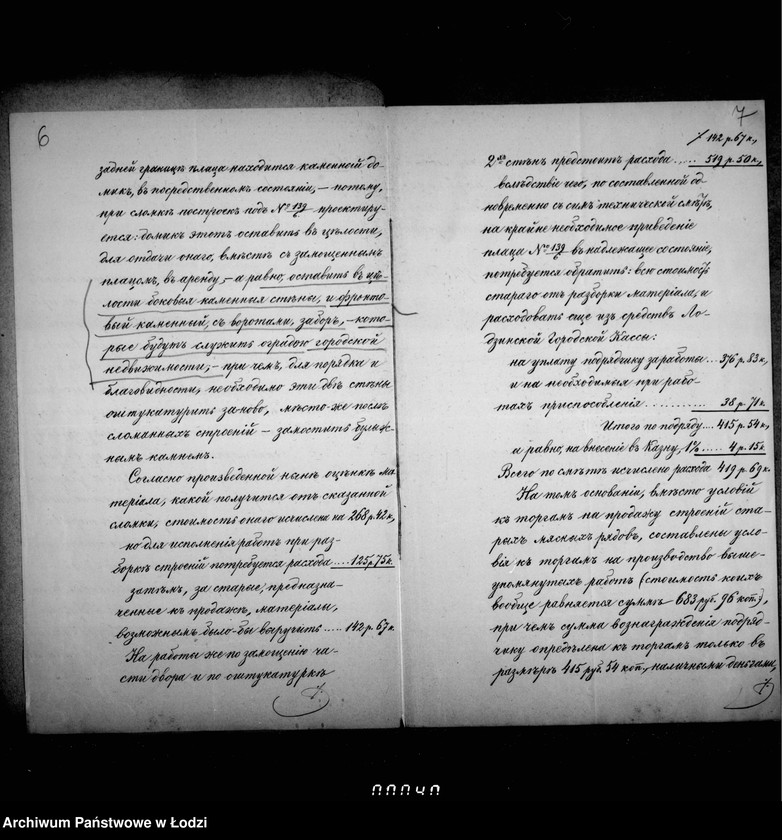 6
задней границѣ плаца находится каменный до-
микъ, въ посредственномъ состояніи, – потому,
при сломкѣ построекъ подъ № 139 проектиру-
ется: домикъ этотъ оставить въ цѣлости,
для отдачи онаго, вмѣстѣ съ замощеннымъ
плацомъ, въ аренду, – а равно, оставить въ цѣ-
лости боковыя каменныя стѣны, и фронто-
вый каменный, съ воротами, заборъ, – кото-
рые будутъ служить оградою городской
недвижимости, – при чемъ, для порядка и
благовидности, необходимо эти двѣ стѣны
оштукатурить заново, мѣсто-же послѣ
сломанныхъ строеній – замостить булыж-
нымъ камнемъ.
Согласно произведенной нынѣ оцѣнкѣ ма-
теріала, какой получится отъ сказанной
сломки, стоимость онаго исчислена на 268 р. 42 к,
но для исполненія работъ при раз-
боркѣ строеній потребуется расхода ..... 125 р. 75 к.
затѣмъ, за старые, предназна-
ченные къ продажѣ, матеріалы,
возможнымъ было-бы выручить ..... 142 р. 67 к.
На работы же по замощенію ча-
сти двора и по оштукатуркѣ
7
142 р. 67 к.,
2хъ стѣнъ предстоитъ расхода ..... 519 р. 50 к.,
вслѣдствіе чего, по составленной од-
новременно съ симъ технической смѣтѣ,
на крайне необходимое приведеніе
плаца № 139 въ надлежащее состояніе,
потребуется обратить: всю стоимость
стараго отъ разборки матеріала, и
расходовать еще изъ средствъ Ло-
дзинской Городской Кассы:
на уплату подрядчику за работы ... 376 р. 83 к.,
и на необходимыя при рабо-
тахъ приспособленія ........... 38 р. 71 к.
Итого по подряду ... 415 р. 54 к,
и равно, на внесеніе въ Казну, 1% ..... 4 р. 15 к.
Всего по смѣтѣ исчислено расхода 419 р. 69 к.
На томъ основаніи, вмѣсто условій
къ торгамъ на продажу строеній ста-
рыхъ мясныхъ рядовъ, составлены усло-
вія къ торгамъ на производство выше-
упомянутыхъ работъ (стоимость коихъ
вообще равняется суммѣ 683 руб. 96 коп.),
при чемъ сумма вознагражденія подряд-
чику опредѣлена къ торгамъ только въ
размѣрѣ 415 руб. 54 коп., наличными деньгами,
7.
7.
000040
Archiwum Państwowe w Łodzi